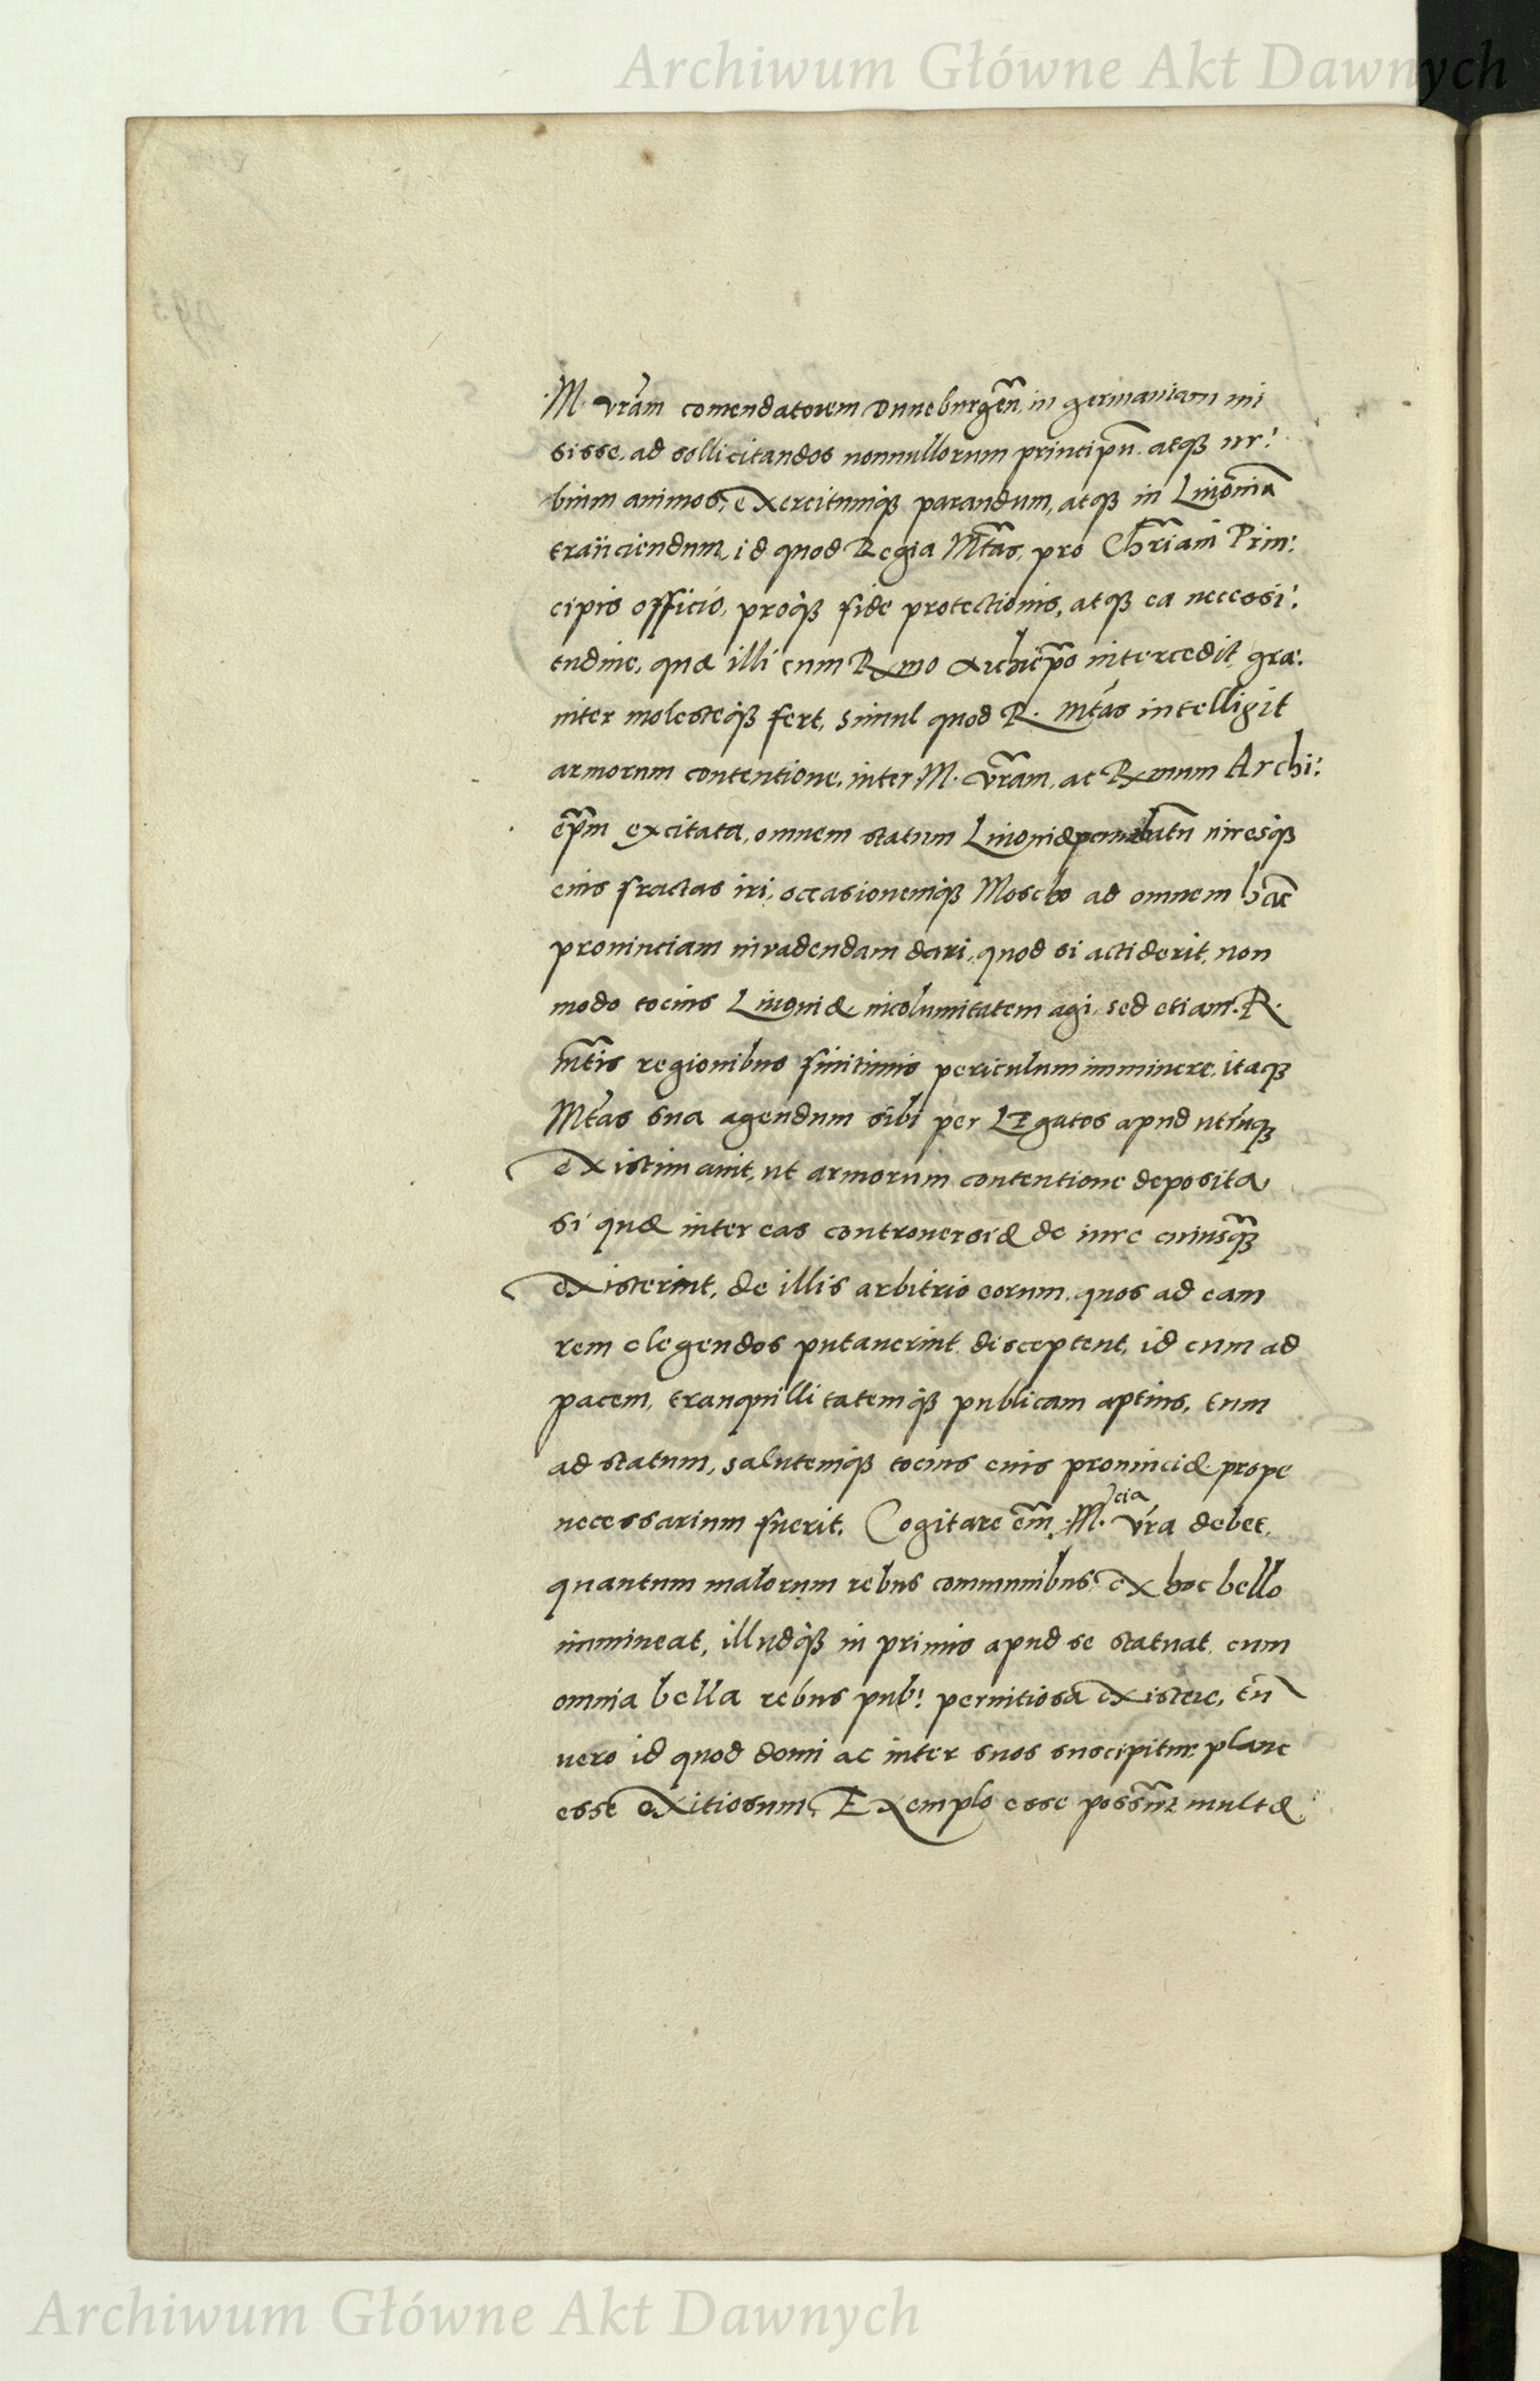 Archiwum Główne Akt Dawnych
M. vr̃am comendatorem Duneburgeñ. in germaniam mi
sisse, ad sollicitandos nonnullorum principũ atqꝫ ur:
bium animos, exercitumqꝫ parandum, atqꝫ in Liuoniã
traijciendum, id quod Regia Mt̃as, pro Chr̃iani Prin:
cipis officio, proqꝫ fide protectionis, atqꝫ ea necessi:
tudine, quæ illi cum Rx̃mo Archiep̃o intercedit, gra:
uiter molesteqꝫ fert, simul quod R. mt̃as intelligit
armorum contentione, inter M. vr̃am, ac Rx̃mum Archi:
ep̃m excitata, omnem statum Liuoniæ uiresqꝫ
eius fractas iri, occasionemqꝫ Moscho ad omnem hãc
prouinciam inuadendam dari, quod si acciderit, non
modo tocius Liuoniæ incolumitatem agi, sed etiam R.
mt̃is regionibus finitimis periculum imminere, itaqꝫ
Mt̃as sua agendum sibi per Legatos apud utrũqꝫ
existimauit, ut armorum contentione deposita
si quæ inter eas controuersiæ de iure cuiusqꝫ
existerint, de illis arbitrio eorum, quos ad eam
rem elegendos putauerint disceptent, id cum ad
pacem, tranquillitatemqꝫ publicam aptius, tum
ad statum, salutemqꝫ tocius eius prouinciæ prope
necessarium fuerit. Cogitare em̃ M.cia vr̃a debet,
quantum malorum rebus communibus, ex hoc bello
immineat, illudqꝫ in primis apud se statuat, cum
omnia bella rebus pub: pernitiosa existere, tũ
uero id quod domi ac inter suos suscipitur plane
esse exitiosum, Exemplo esse possũt multæ
Archiwum Główne Akt Dawnych